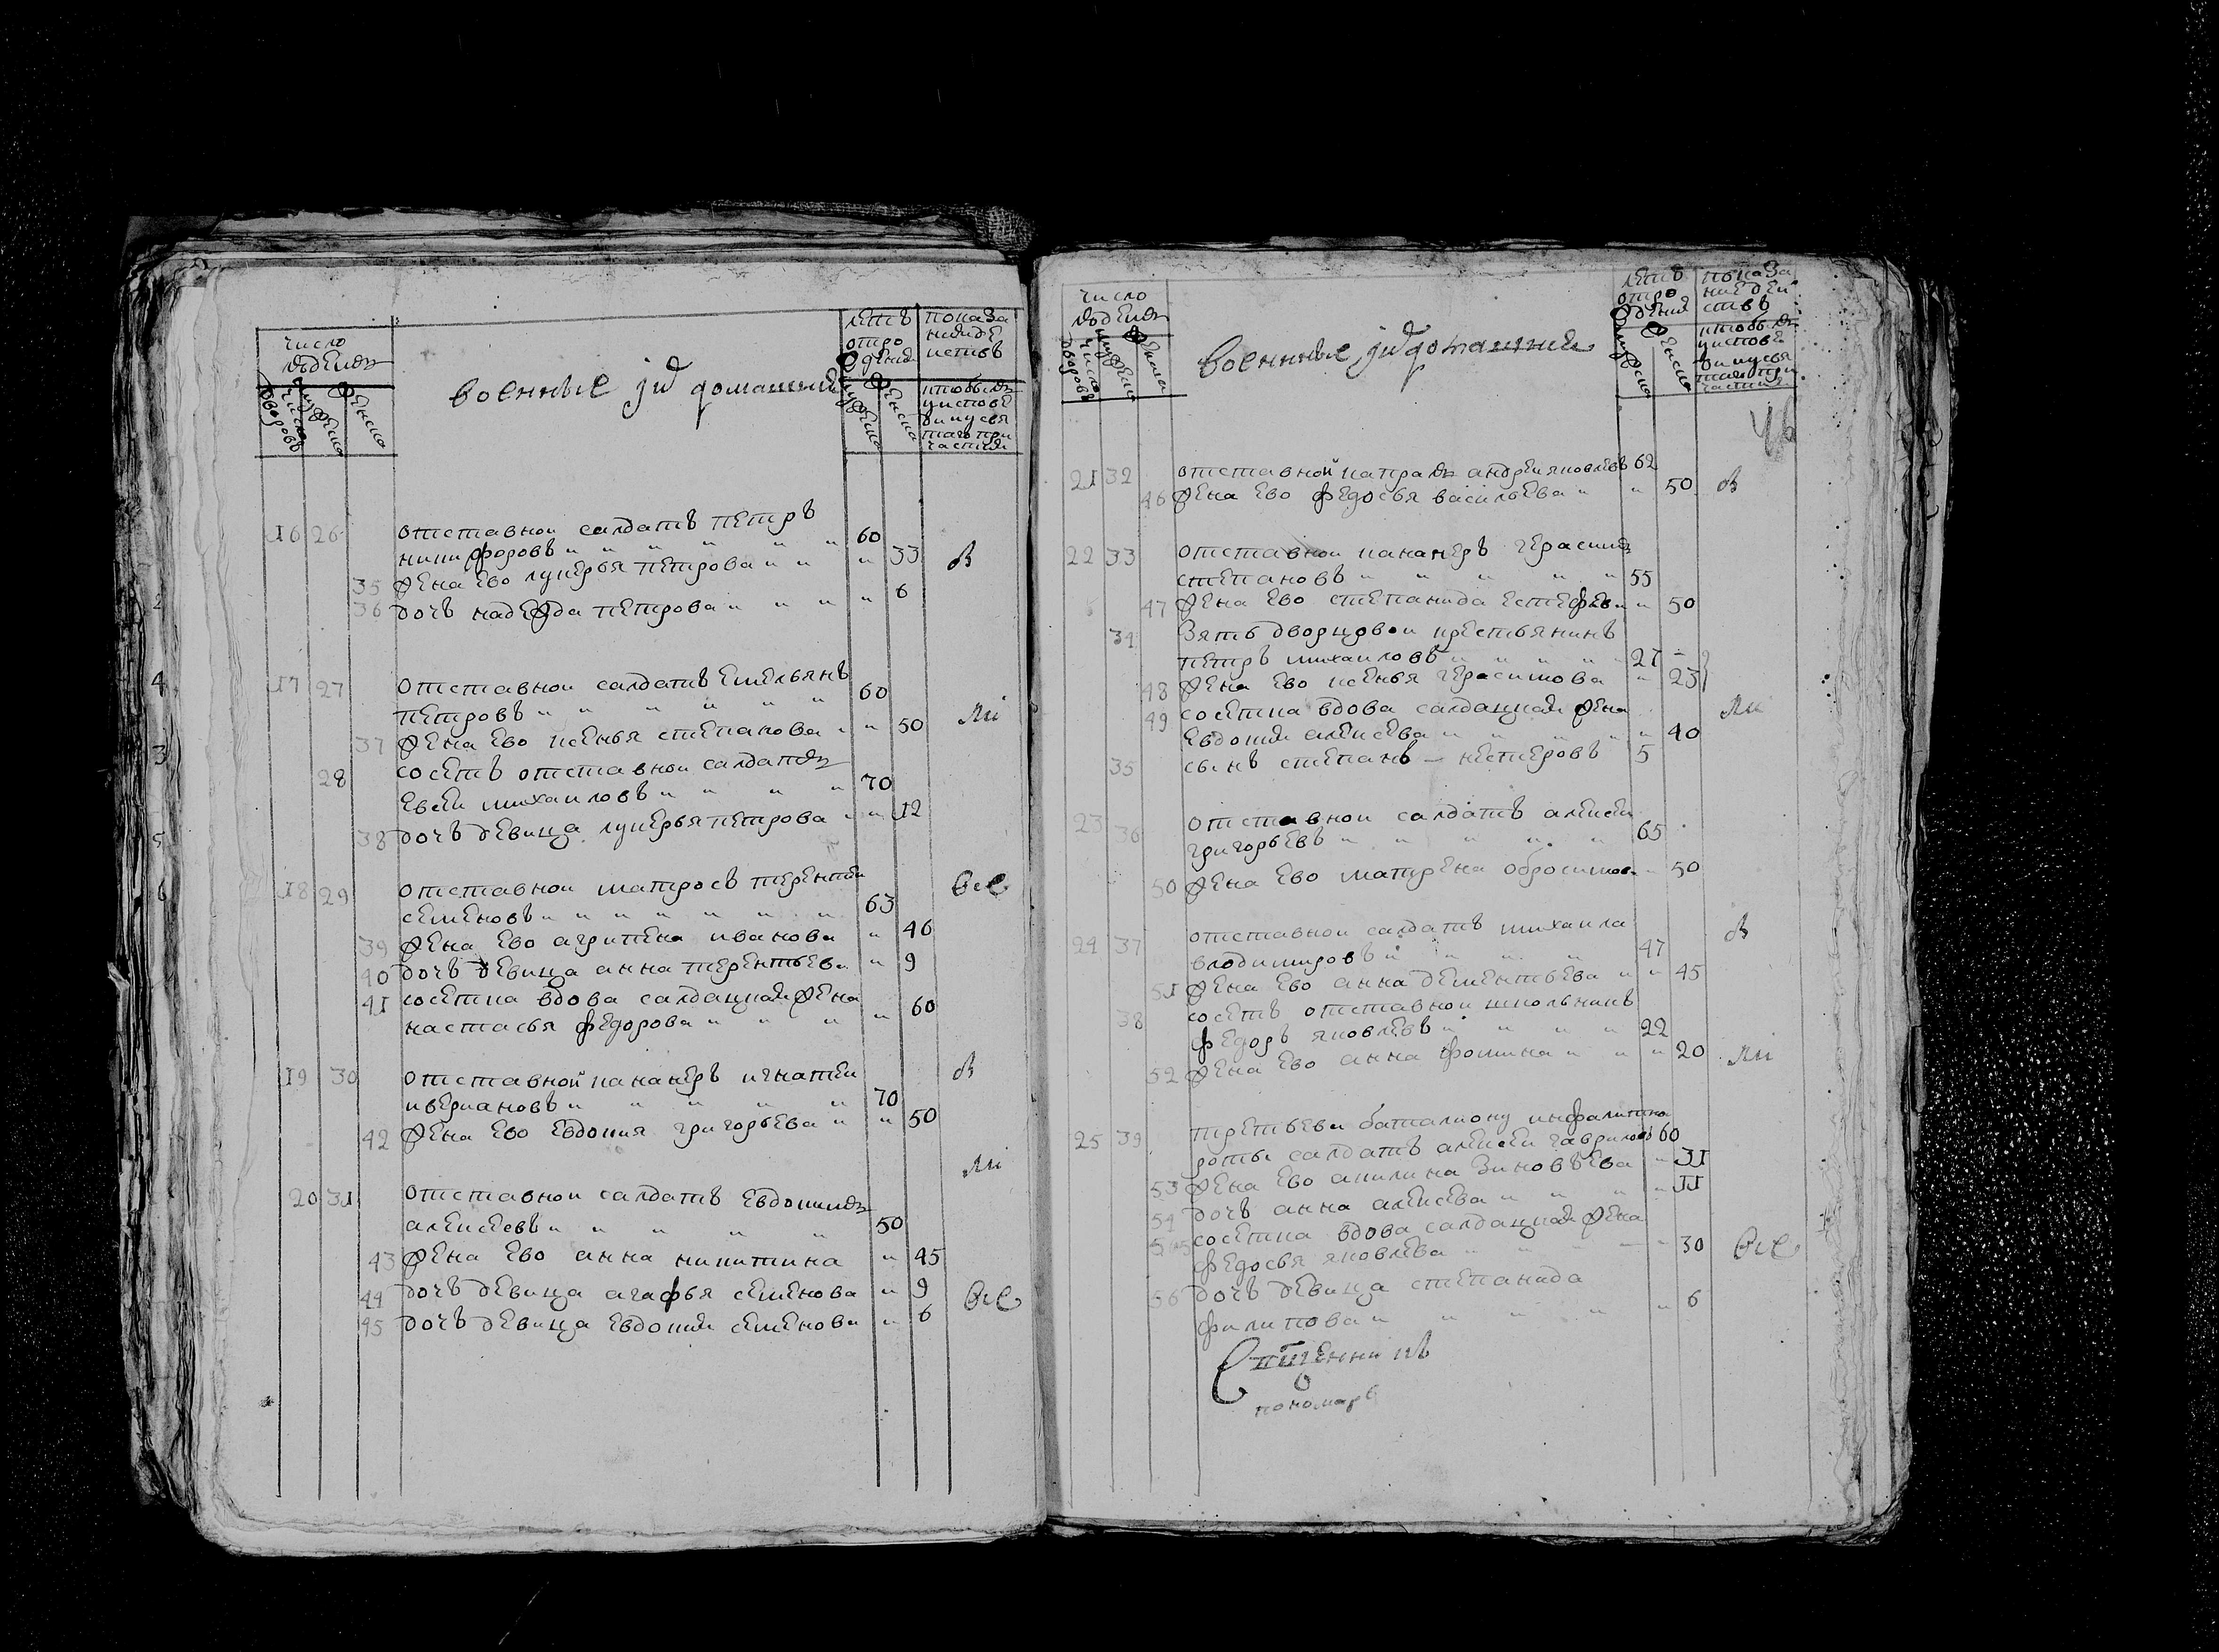 число
людеи
дворовъ
число
мужеска
женска
военные и их домашние
летъ
от ро
ждения
мужеска
женска
показа
ние де
иствъ
кто былъ
у испове
ди и у свя
таго при
частия
16 26 отставнои салдатъ петръ
никифоровъ " " " " " " 60
35 жена ево лукерья петрова " " " 33
36 дочь надежда петрова " " " " 6
17 27 отставнои салдатъ емельянъ
петровъ " " " " " " 60
37 жена ево ксенья степанова " " 50
28 соседъ отставнои салдатъ
евсеи михаиловъ " " " " 70
38 дочь девица лукерья петрова " " 12
18 29 отставнои матросъ терентеи
семеновъ " " " " " " " 63
39 жена ево агрипена иванова " 46
40 дочь девица анна терентьева " 9
41 соседка вдова салдацкая жена
настасья федорова " " " " 60
19 30 отставной кананеръ игнатеи
аверкановъ " " " " " 70
42 жена ево евдокия григорьева " " 50
20 31 отставнои салдатъ евдокимъ
алексеевъ " " " " " 50
43 жена ево анна никитина " 45
44 дочь девица агафья семенова " 9
45 дочь девица евдокия семенова " 6
число
людеи
дворовъ
число
мужеска
женска
военные и их домашние
летъ
от ро
ждения
мужеска
женска
показа
ние деи
ствъ
кто былъ
у испове
ди и у свя
таго при
частия
46
21 32 отставной капралъ андреи яковлевъ 62
46 жена ево федосья васильева " " 50
22 33 отставнои кананеръ герасимъ
степановъ " " " " " 55
47 жена ево степанида естефеева " 50
34 зять дворцовои крестьянинъ
петръ михаиловъ " " " " " 27
48 жена ево ксенья герасимова " 25
49 соседка вдова салдацкая жена
евдокия алексева " " " " " 40
35 сынъ степанъ — нестеровъ 5
23 36 отставнои салдатъ алексеи
григорьевъ " " " " " 65
50 жена ево матрена обросимова " 50
24 37 отставнои салдатъ михаила
влодимировъ " " " " 47
51 жена ево анна дементьева " " 45
38 соседъ отставнои школьникъ
федоръ яковлевъ " " " " 22
52 жена ево анна фомина " " " 20
25 39 третьева баталиону инфалитна
роты салдатъ алексеи гавриловъ 60
53 жена ево акилина зиновьева " 31
54 дочь анна алексева " " " " 11
55 соседка вдова салдацкая жена
федосья яковлева " " " — " 30
56 дочь девица степанида
филипова " " " " " 6
пономарь